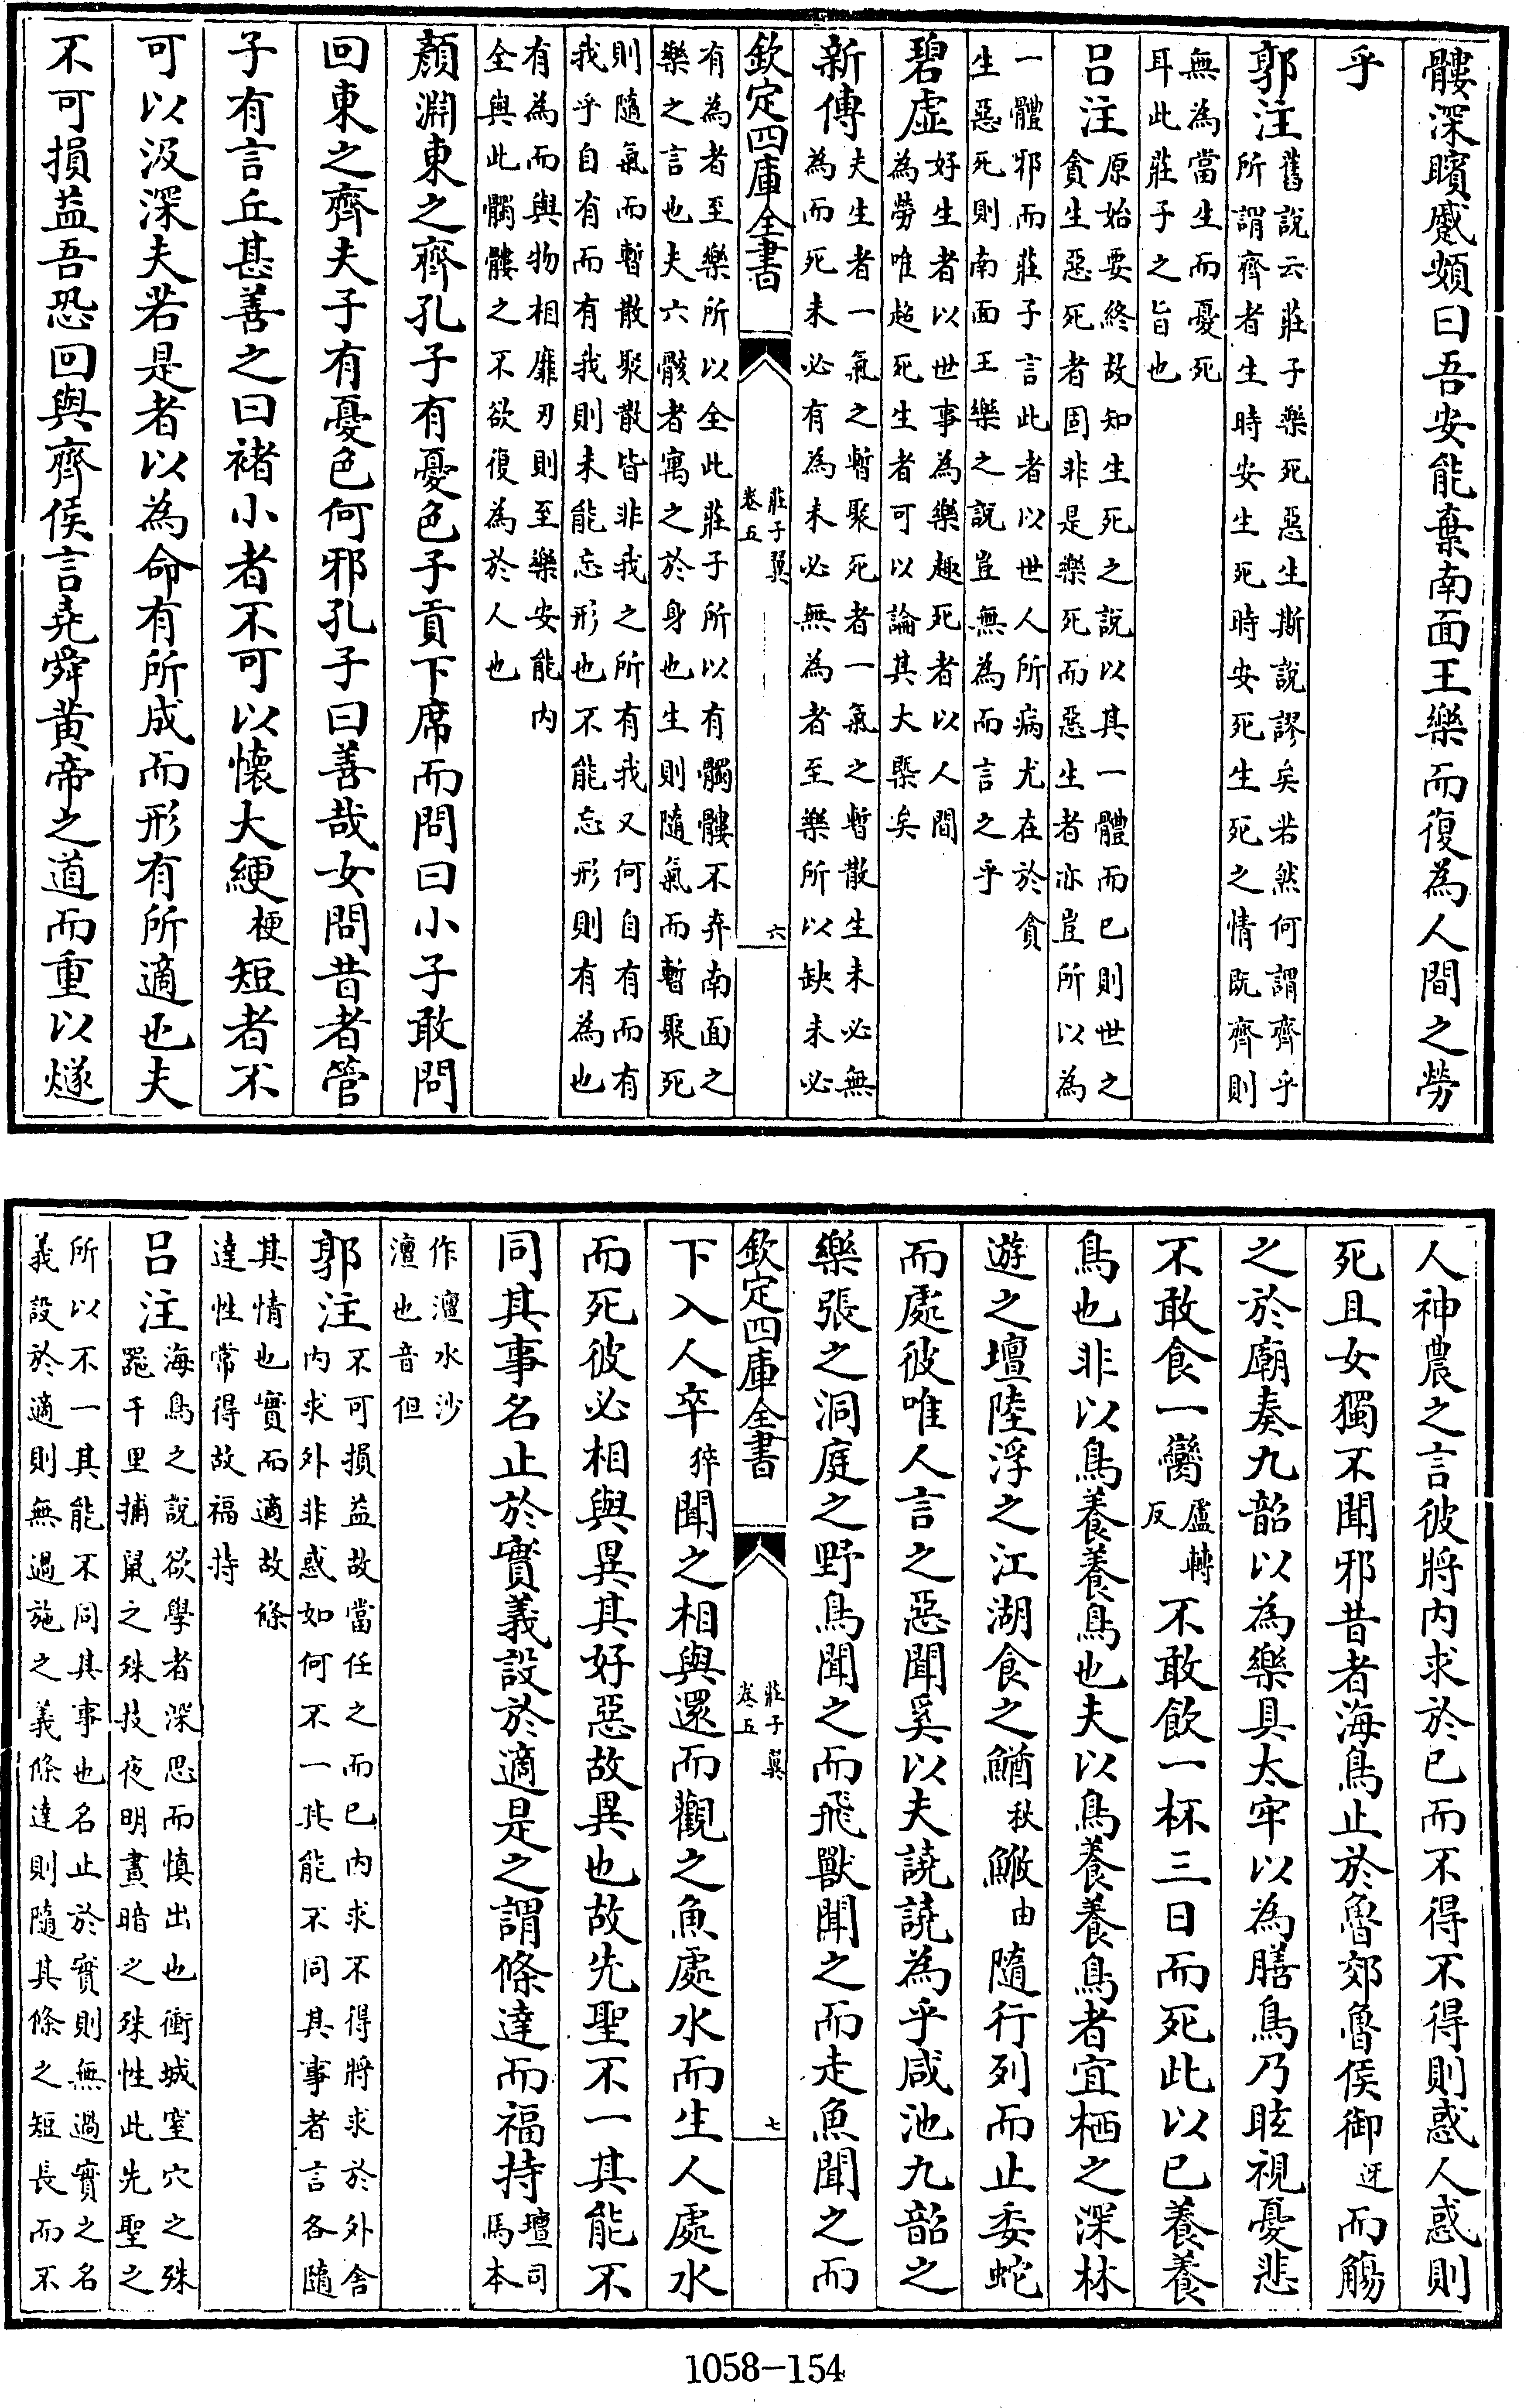 髏深矉蹙頞曰吾安能棄南面王樂而復為人間之勞
乎
郭注舊說云莊子樂死惡生斯說謬矣若然何謂齊乎
所謂齊者生時安生死時安死生死之情既齊則
無為當生而憂死
耳此莊子之旨也
吕注原始要終故知生死之說以其一體而已則世之
貪生惡死者固非是樂死而惡生者亦豈所以為
一體邪而莊子言此者以世人所病尤在於貪
生惡死則南面王樂之說豈無為而言之乎
碧虛好生者以世事為樂趣死者以人間
為勞唯超死生者可以論其大槩矣
新傳夫生者一氣之暫聚死者一氣之暫散生未必無
為而死未必有為未必無為者至樂所以缺未必
欽定四庫全書
莊子翼
卷五
六
有為者至樂所以全此莊子所以有髑髏不弃南面之
樂之言也夫六骸者寓之於身也生則隨氣而暫聚死
則隨氣而暫散聚散皆非我之所有我又何自有而有
我乎自有而有我則未能忘形也不能忘形則有為也
有為而與物相靡刃則至樂安能内
全與此髑髏之不欲復為於人也
顏淵東之齊孔子有憂色子貢下席而問曰小子敢問
回東之齊夫子有憂色何邪孔子曰善哉女問昔者管
子有言丘甚善之曰褚小者不可以懷大綆梗短者不
可以汲深夫若是者以為命有所成而形有所適也夫
不可損益吾恐回與齊侯言堯舜黄帝之道而重以燧
人神農之言彼將内求於已而不得不得則惑人惑則
死且女獨不聞邪昔者海鳥止於魯郊魯侯御迓而觴
之於廟奏九韶以為樂具太牢以為膳鳥乃眩視憂悲
不敢食一臠盧轉反不敢飲一杯三日而死此以已養養
鳥也非以鳥養養鳥也夫以鳥養養鳥者宜栖之深林
遊之壇陸浮之江湖食之鰌秋鮍由隨行列而止委蛇
而處彼唯人言之惡聞奚以夫譊譊為乎咸池九韶之
樂張之洞庭之野鳥聞之而飛獸聞之而走魚聞之而
欽定四庫全書
莊子翼
卷五
七
下入人卒猝聞之相與還而觀之魚處水而生人處水
而死彼必相與異其好惡故異也故先聖不一其能不
同其事名止於實義設於適是之謂條達而福持壇司
馬本
作澶水沙
澶也音但
郭注不可損益故當任之而已内求不得將求於外舍
内求外非惑如何不一其能不同其事者言各隨
其情也實而適故條
達性常得故福持
吕注海鳥之說欲學者深思而慎出也衝城窒穴之殊
噐千里捕鼠之殊技夜明晝暗之殊性此先聖之
所以不一其能不同其事也名止於實則無過實之名
義設於適則無過施之義條達則隨其條之短長而不
1058-154